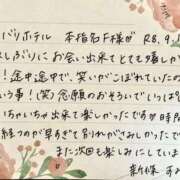 バリホテル 本指名F様が R8.9.1
久しぶりにお会い出来てとても嬉しか
！途中途中で、笑いがこぼれていたの
う事!(笑)念願のおそろいでいっぱ
いちゃいちゃ出来て楽しかったですね
経つのが早すぎて別れがさみしかったで
また次回も楽しみにしていま
新館様